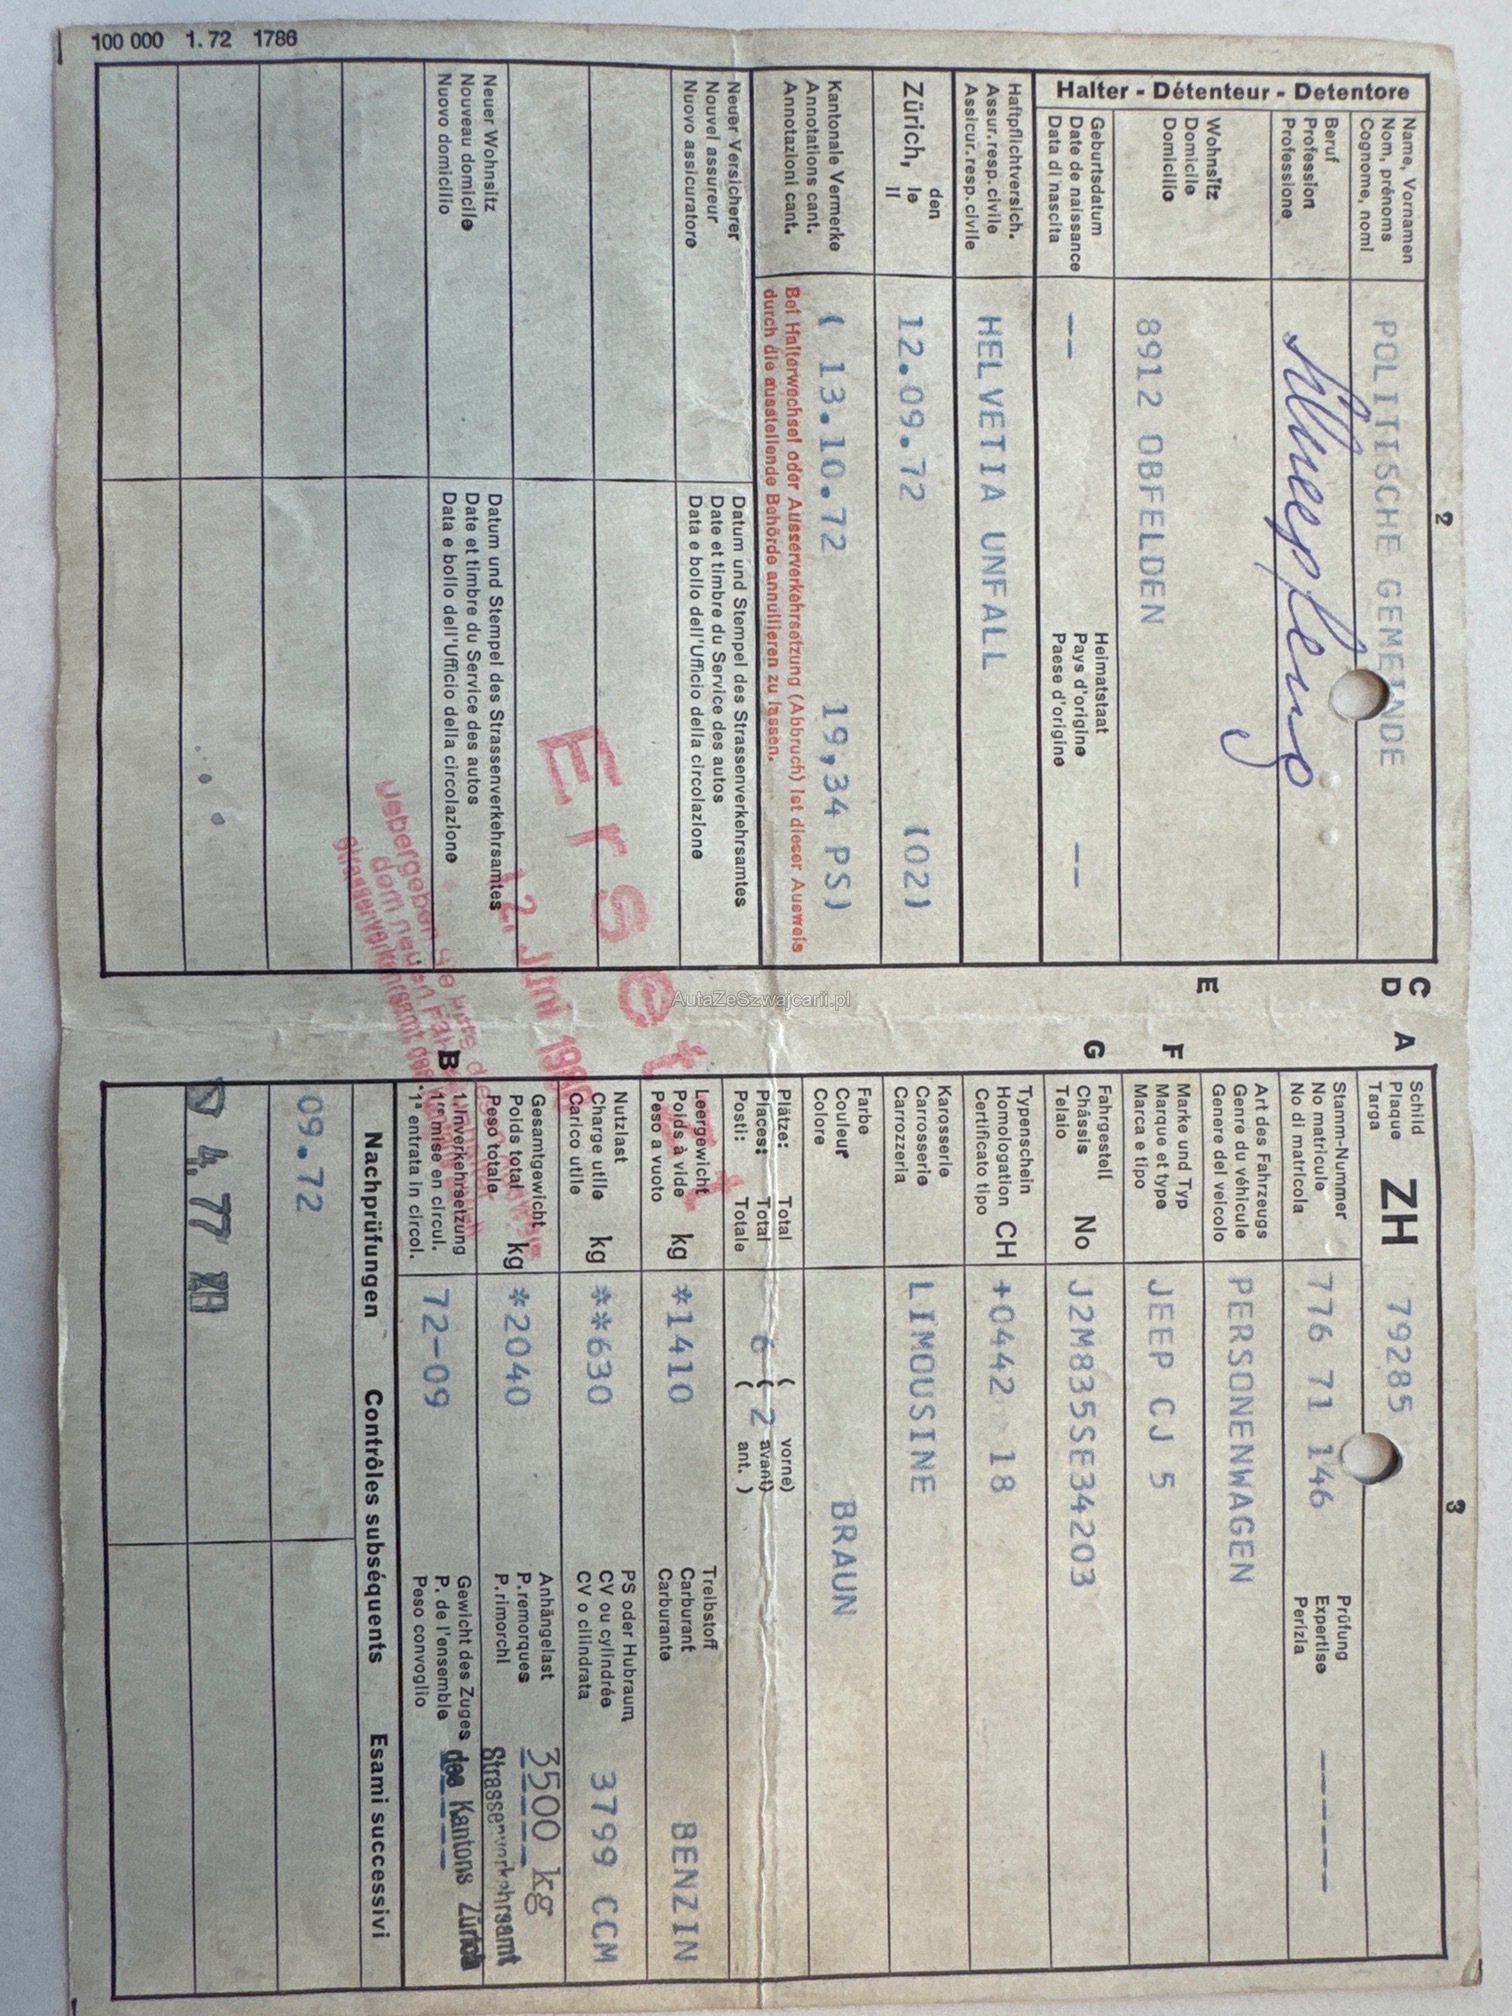 2
Halter - Détenteur - Detentore
Name, Vornamen
Nom, prénoms
Cognome, nomi
POLITISCHE GEMEINDE
Beruf
Profession
Professione
Wohnsitz
Domicile
Domicilio
8912 OBFELDEN
Geburtsdatum
Date de naissance
Data di nascita
--
Heimatstaat
Pays d'origine
Paese d'origine
--
Haftpflichtversich.
Assur.resp.civile
Assicur.resp.civile
HELVETIA UNFALL
Zürich,
den
le
il
12.09.72 (02)
Kantonale Vermerke
Annotations cant.
Annotazioni cant.
( 13.10.72 19,34 PS)
Bei Halterwechsel oder Ausserverkehrsetzung (Abbruch) ist dieser Ausweis
durch die ausstellende Behörde annullieren zu lassen.
Neuer Versicherer
Nouvel assureur
Nuovo assicuratore
Datum und Stempel des Strassenverkehrsamtes
Date et timbre du Service des autos
Data e bollo dell'Ufficio della circolazione
Ersetzt
Neuer Wohnsitz
Nouveau domicile
Nuovo domicilio
Datum und Stempel des Strassenverkehrsamtes
Date et timbre du Service des autos
Data e bollo dell'Ufficio della circolazione
100 000 1.72 1786
C
D
E
AutaZeSzwajcarii.pl
3
A
Schild
Plaque
Targa
ZH 79285
Stamm-Nummer
No matricule
No di matricola
776 71 146
Prüfung
Expertise
Perizia
------
Art des Fahrzeugs
Genre du véhicule
Genere del veicolo
PERSONENWAGEN
F
Marke und Typ
Marque et type
Marca e tipo
JEEP CJ 5
G
Fahrgestell
Châssis
Telaio
No
J2M835SE34203
Typenschein
Homologation
Certificato tipo
CH
+0442 18
Karosserie
Carrosserie
Carrozzeria
LIMOUSINE
Farbe
Couleur
Colore
BRAUN
Plätze: Total ( vorne)
Places: Total 6 ( 2 avant)
Posti: Totale ( ant. )
Leergewicht
Poids à vide
Peso a vuoto
kg *1410
Treibstoff
Carburant
Carburante
BENZIN
Nutzlast
Charge utile
Carico utile
kg **630
PS oder Hubraum
CV ou cylindrée
CV o cilindrata
3799 CCM
Gesamtgewicht
Poids total
Peso totale
kg *2040
Anhängelast
P.remorques
P.rimorchi
3500 kg
Strassenverkehrsamt
des Kantons Zürich
B
1.Inverkehrsetzung
1re mise en circul.
1a entrata in circol.
72-09
Gewicht des Zuges
P. de l'ensemble
Peso convoglio
Nachprüfungen Contrôles subséquents Esami successivi
09.72
4. 77